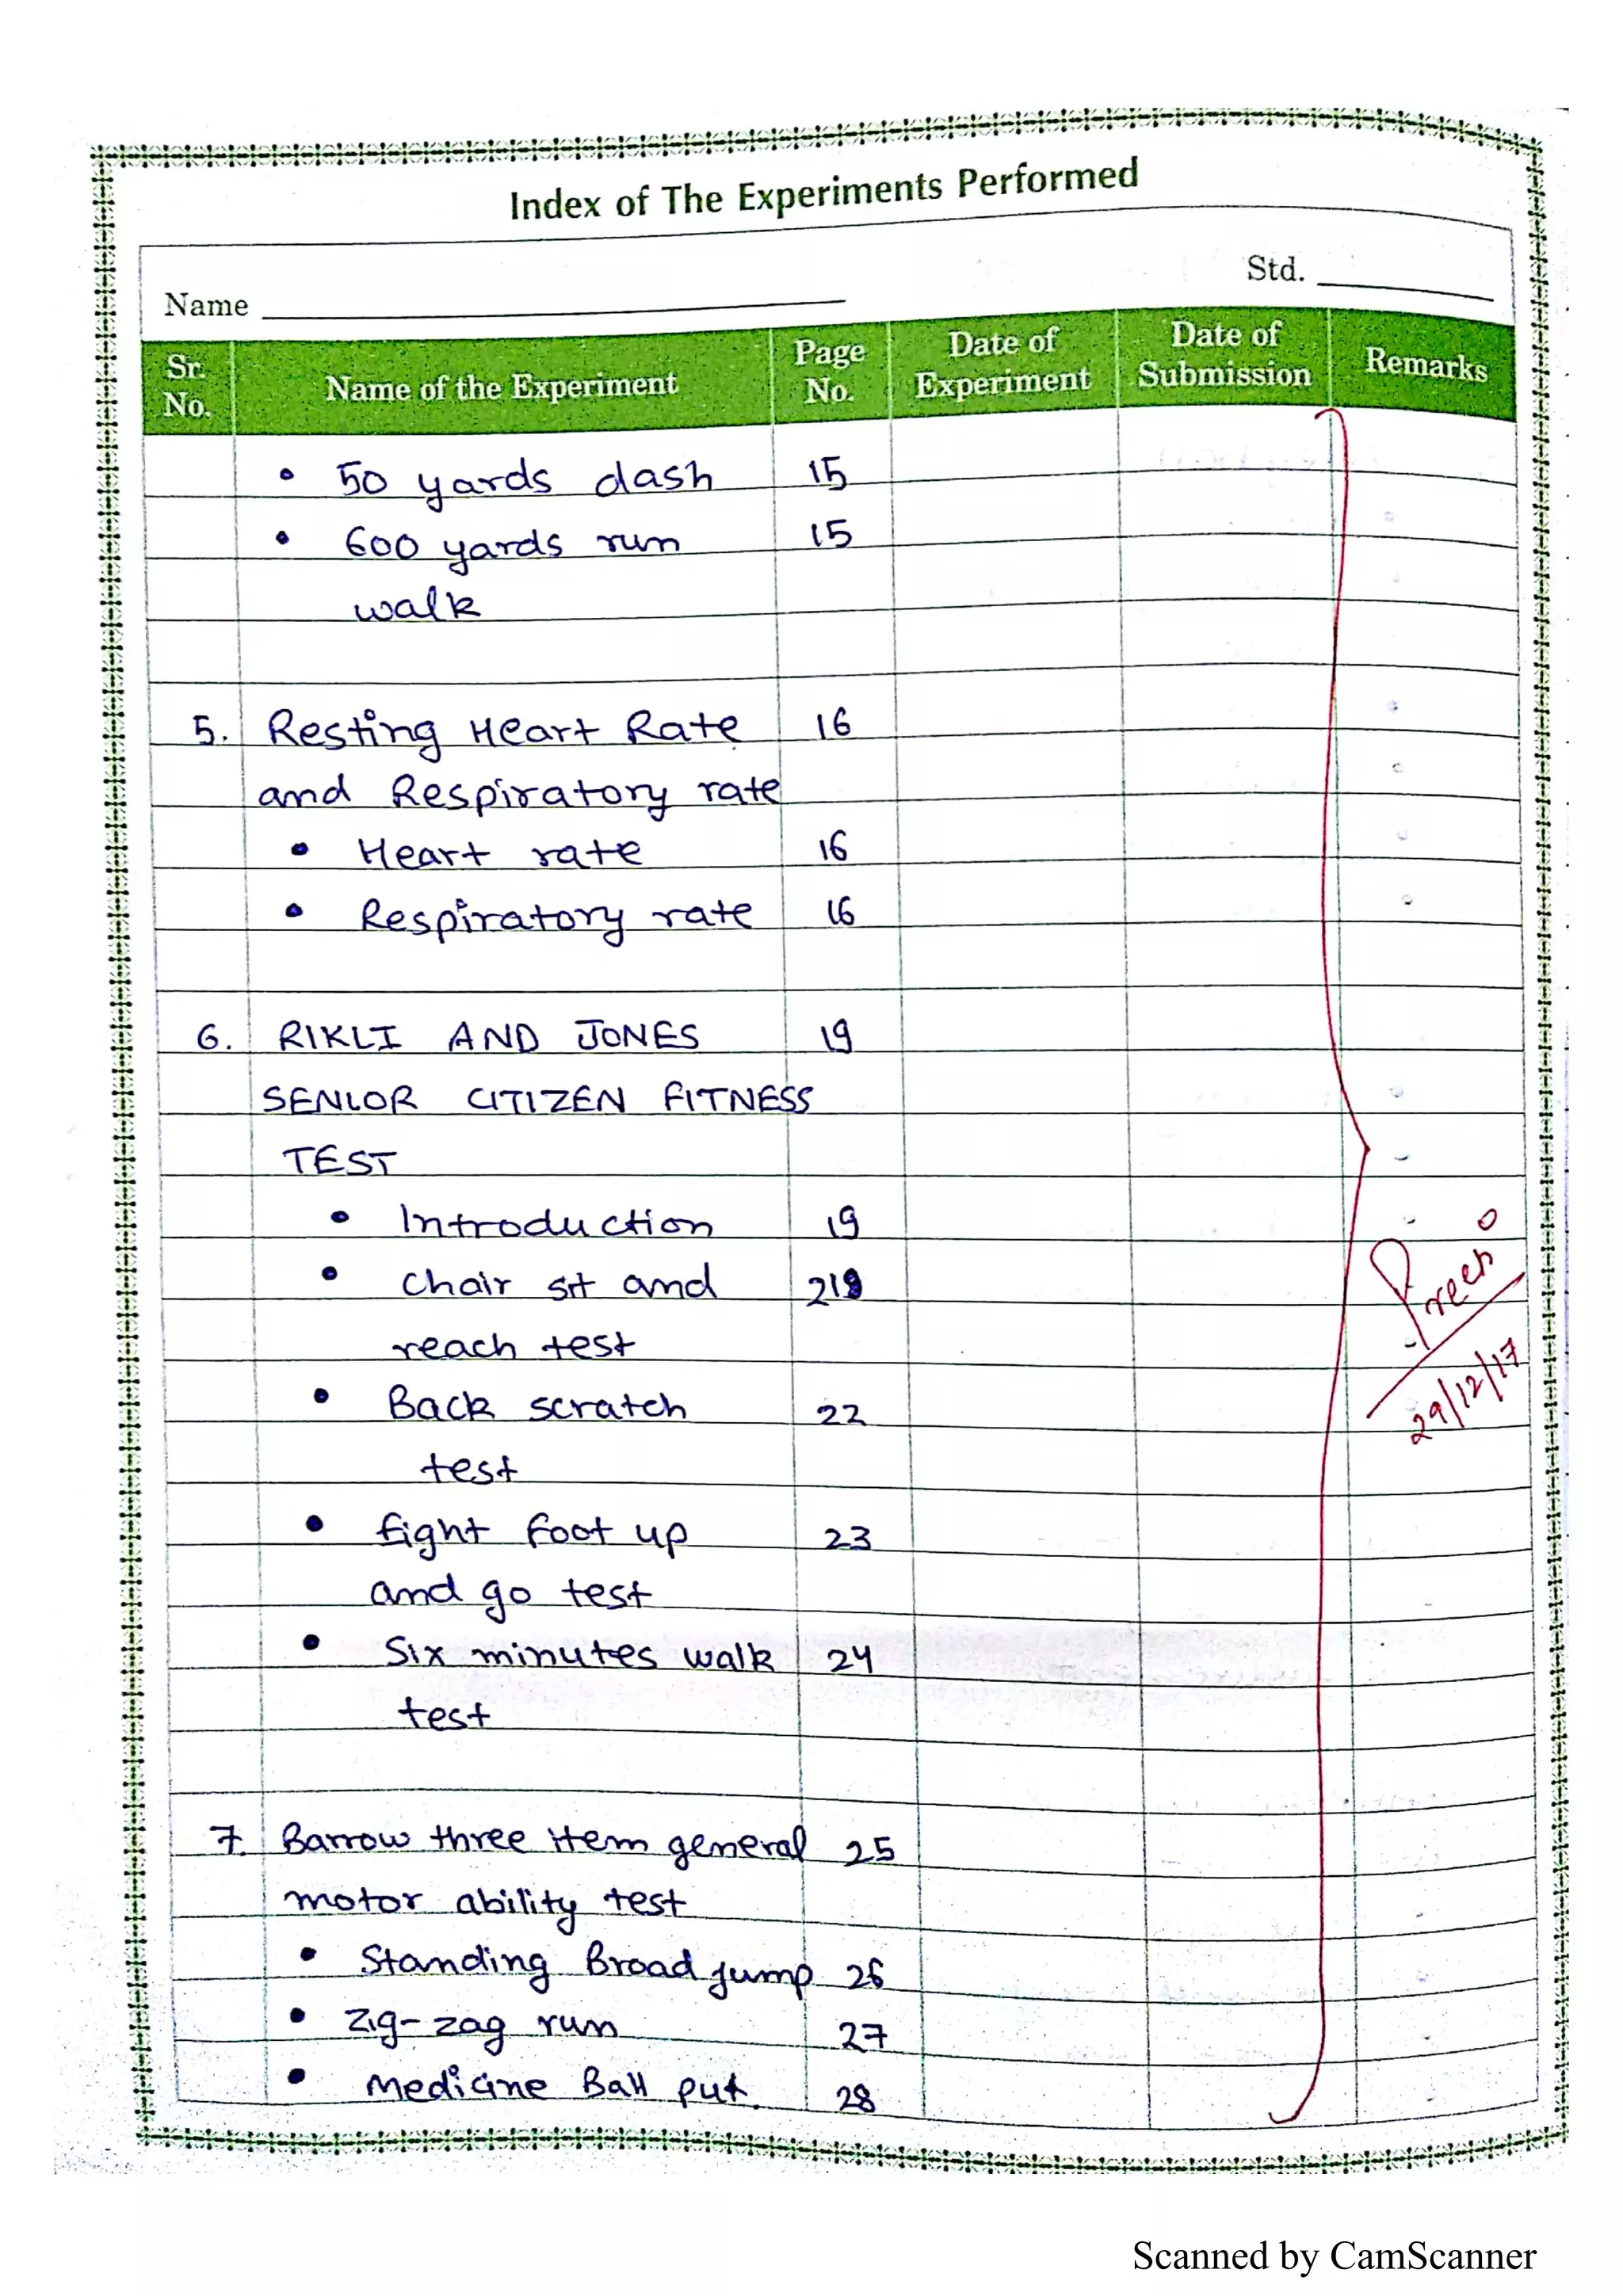 Index of The Experiments Performed
Name Std.
Sr. No. Name of the Experiment Page No. Date of Experiment Date of Submission Remarks
• 50 yards dash 15
• 600 yards run 15
walk
5. Resting Heart Rate 16
and Respiratory rate
• Heart rate 16
• Respiratory rate 16
6. RIKLI AND JONES 19
SENIOR CITIZEN FITNESS
TEST
• Introduction 19
• Chair sit and 21
reach test
• Back scratch 22
test
• Eight foot up 23
and go test
• Six minutes walk 24
test
29/12/17
7. Barrow three item general 25
motor ability test
• Standing Broad jump 26
• Zig-zag run 27
• Medicine Ball put. 28
Scanned by CamScanner